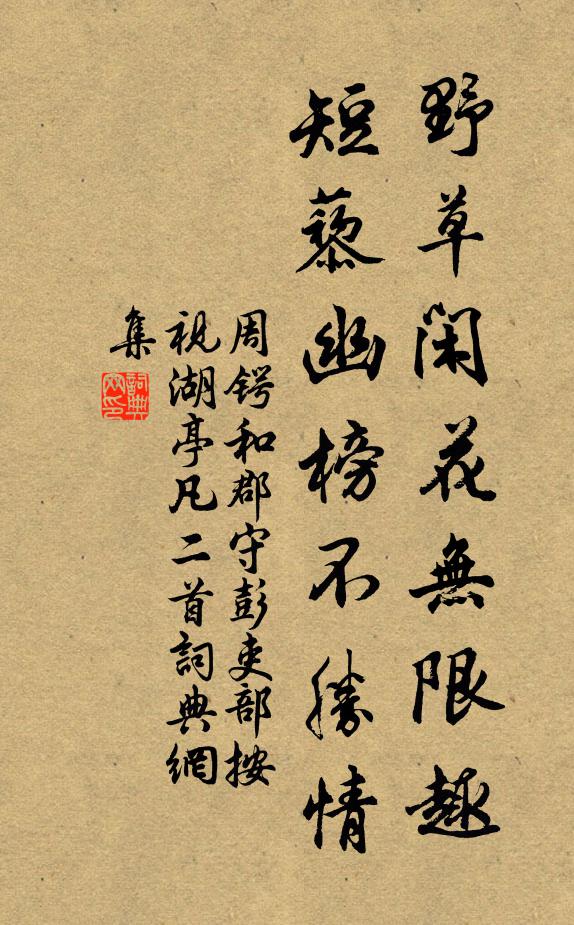 野草閑花無限趣
短藜幽榜不勝情
周鍔和郡守彭吏部按
視湖亭凡二首詞典網
集
詞典
网印